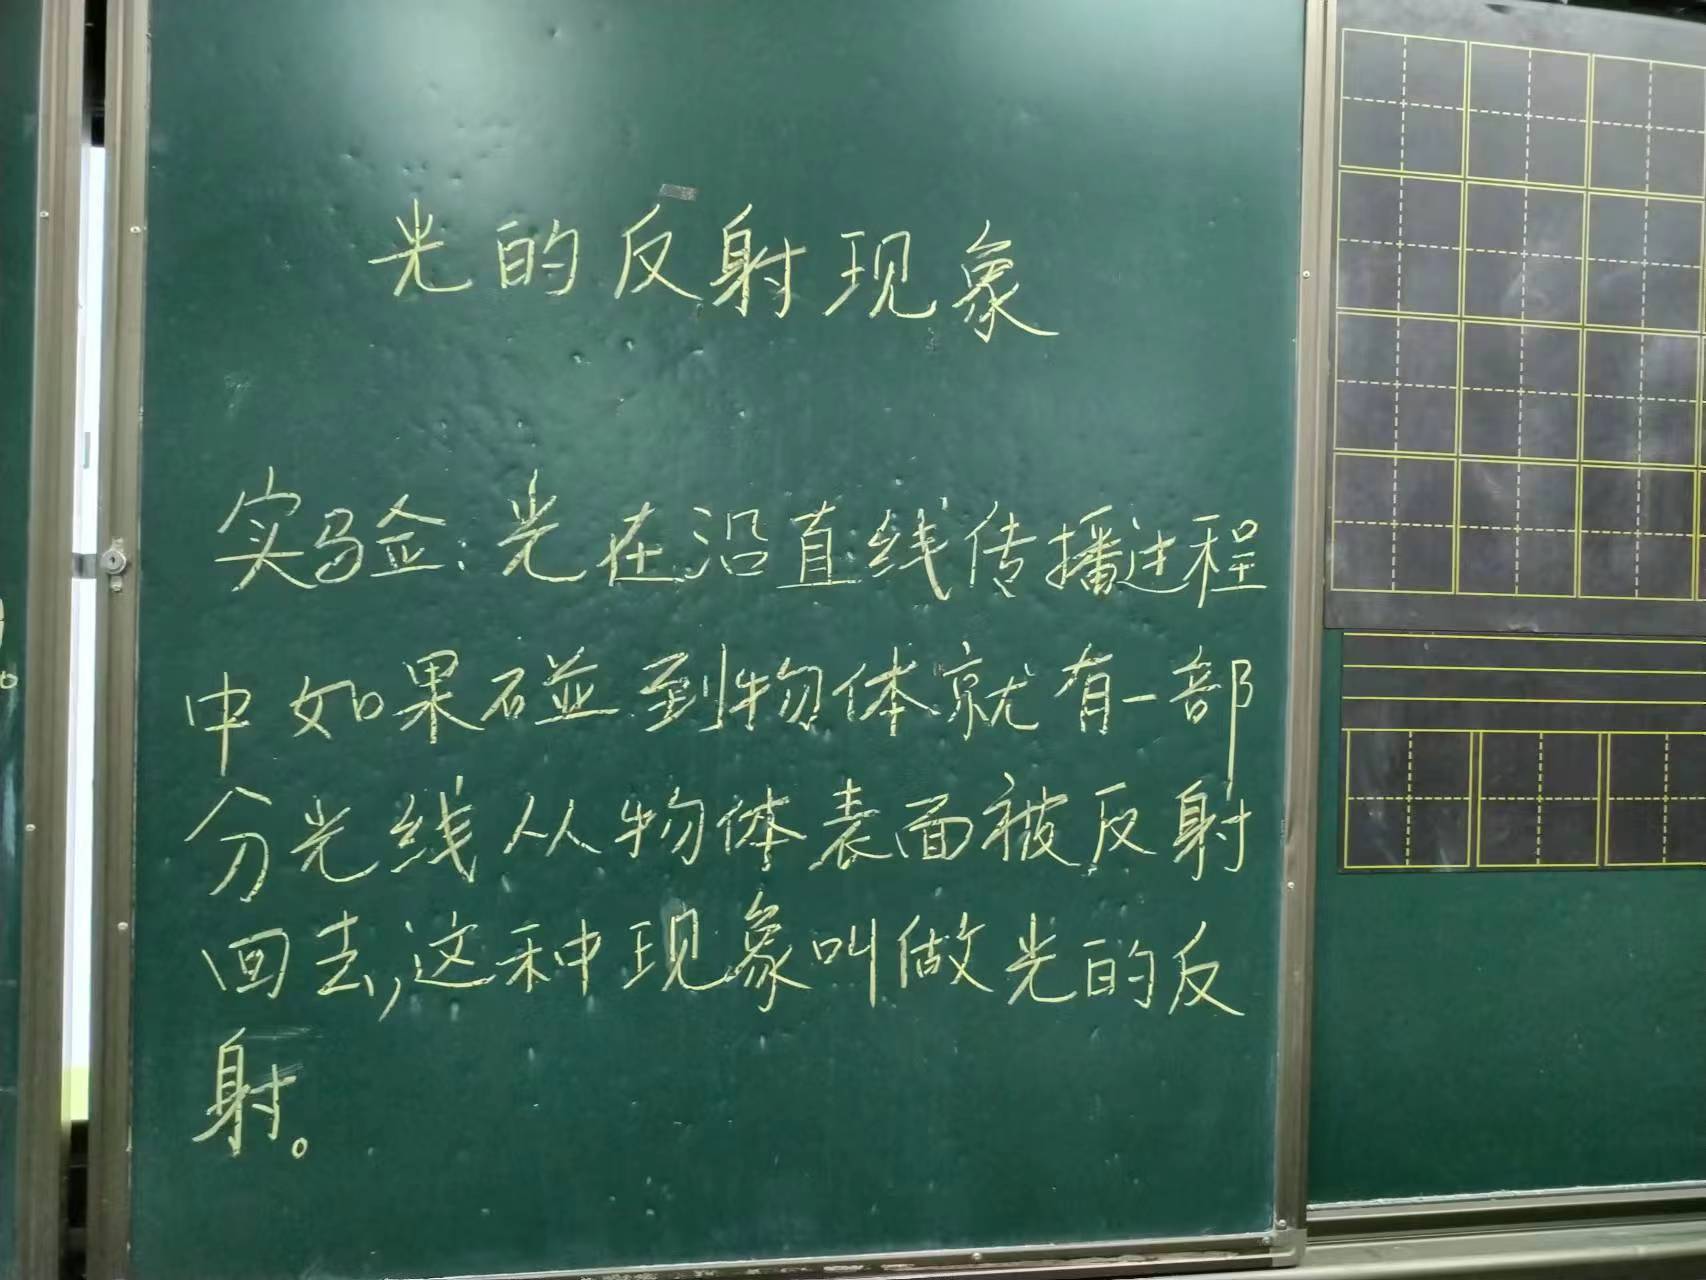 光的反射现象
实验:光在沿直线传播过程
中如果碰到物体就有一部
分光线从物体表面被反射
回去,这种现象叫做光的反
射。